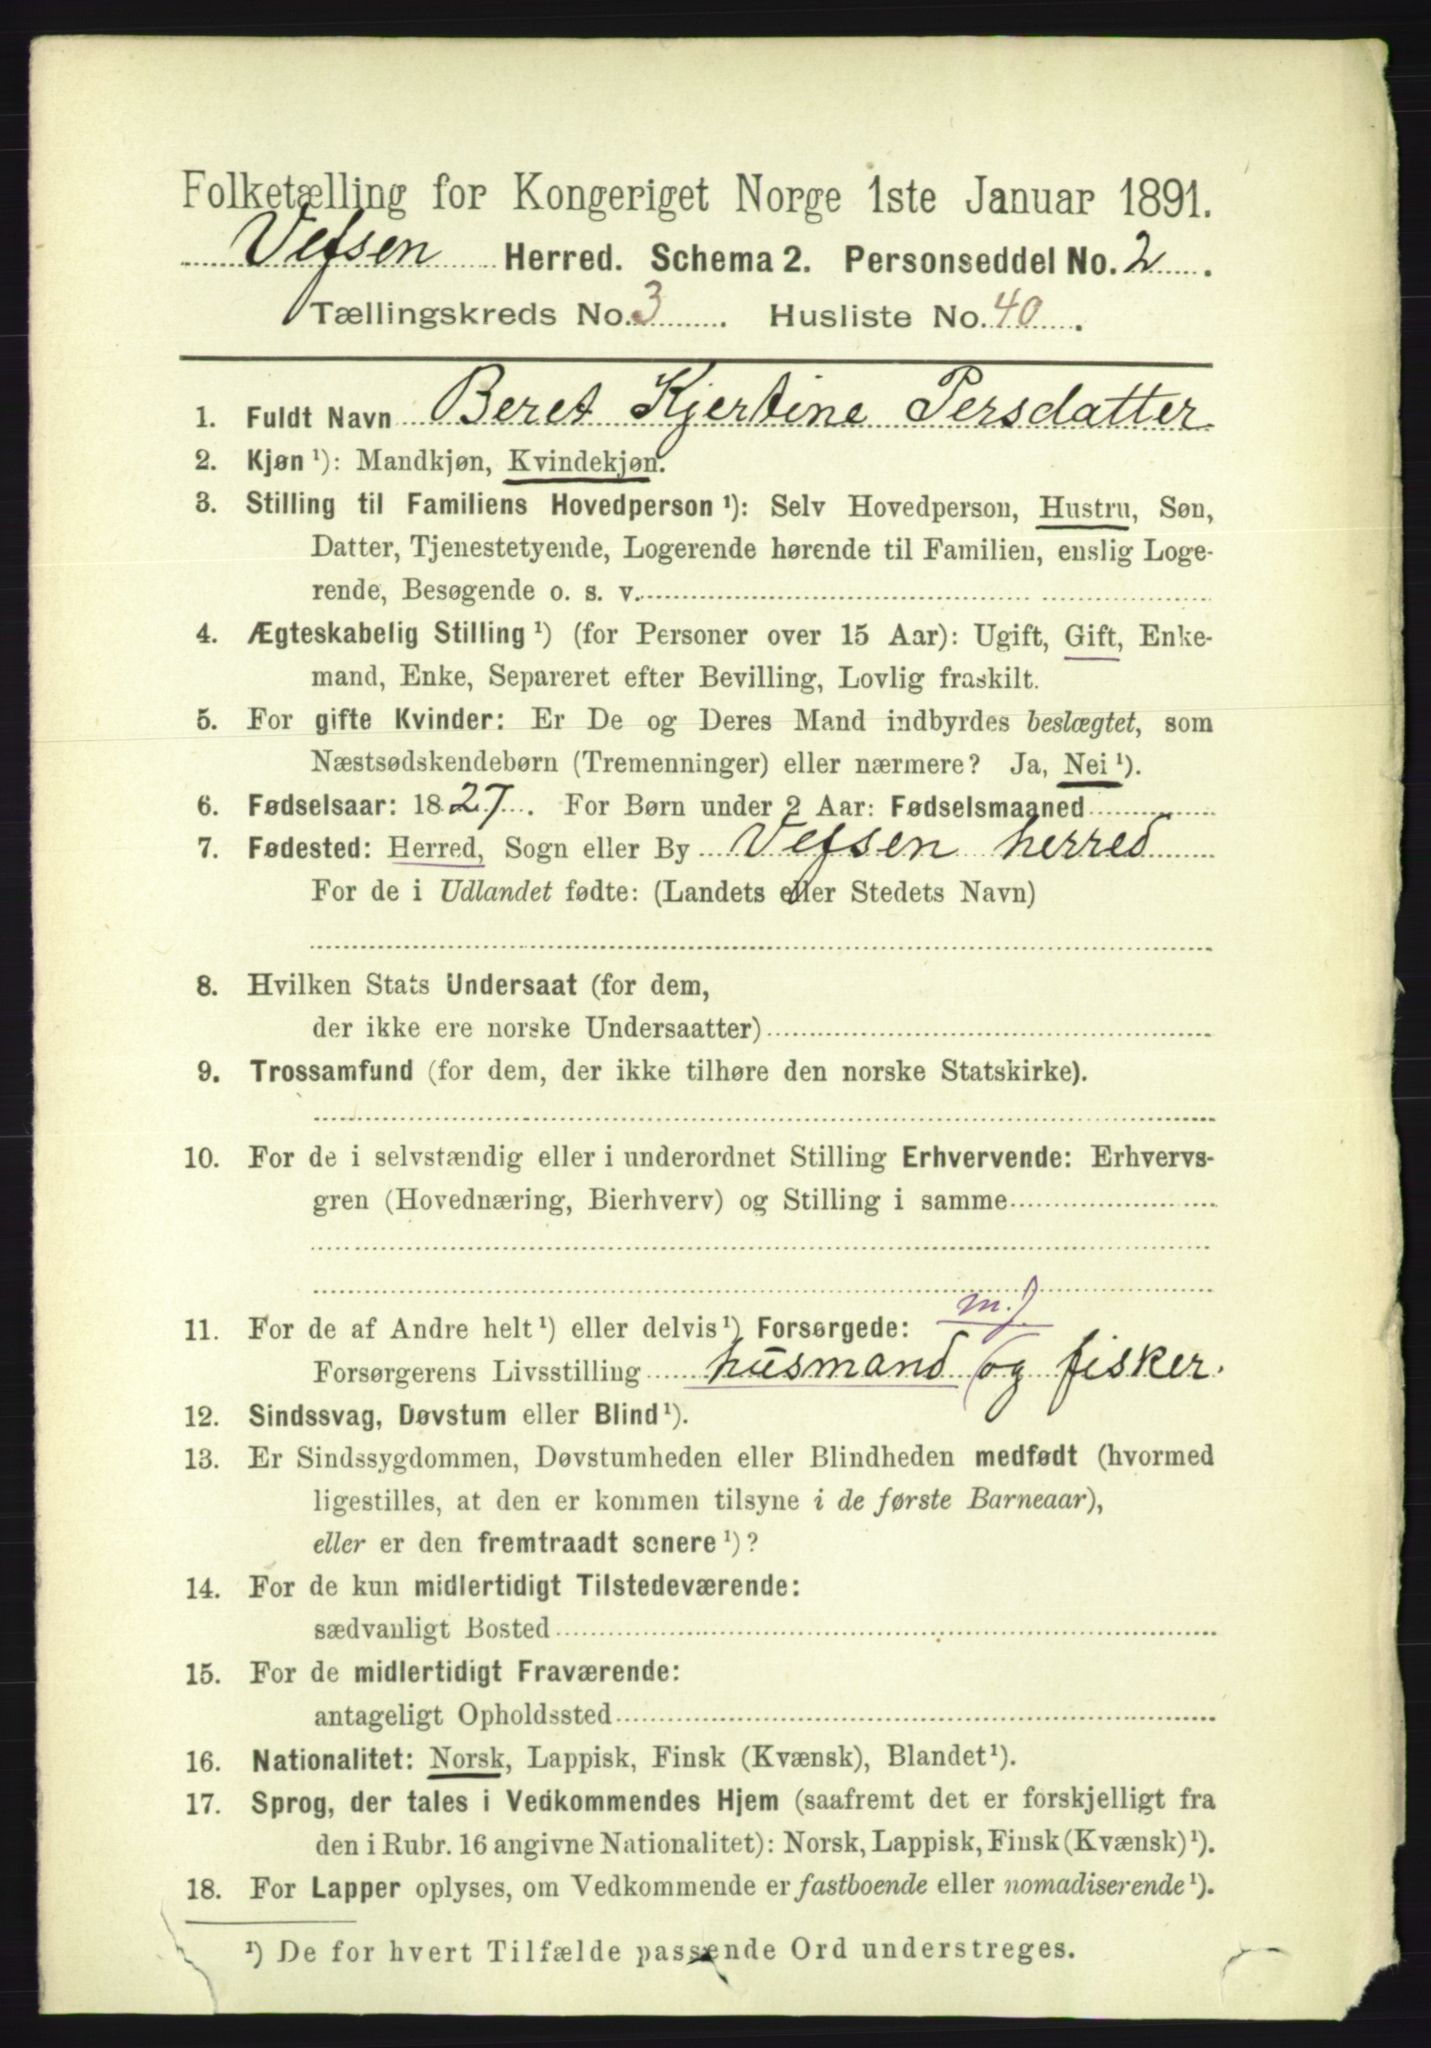 Folketælling for Kongeriget Norge 1ste Januar 1891.
Vefsen Herred. Schema 2. Personseddel No. 2.
Tællingskreds No. 3. Husliste No. 40.
1. Fuldt Navn Beret Kjertine Persdatter
2. Kjøn ¹): Mandkjøn, Kvindekjøn.
3. Stilling til Familiens Hovedperson ¹): Selv Hovedperson, Hustru, Søn,
Datter, Tjenestetyende, Logerende hørende til Familien, enslig Loge-
rende, Besøgende o. s. v.
4. Ægteskabelig Stilling ¹) (for Personer over 15 Aar): Ugift, Gift, Enke-
mand, Enke, Separeret efter Bevilling, Lovlig fraskilt.
5. For gifte Kvinder: Er De og Deres Mand indbyrdes beslægtet, som
Næstsødskendebørn (Tremenninger) eller nærmere? Ja, Nei ¹).
6. Fødselsaar: 1827. For Børn under 2 Aar: Fødselsmaaned
7. Fødested: Herred, Sogn eller By Vefsen herred
For de i Udlandet fødte: (Landets eller Stedets Navn)
8. Hvilken Stats Undersaat (for dem,
der ikke ere norske Undersaatter)
9. Trossamfund (for dem, der ikke tilhøre den norske Statskirke).
10. For de i selvstændig eller i underordnet Stilling Erhvervende: Erhvervs-
gren (Hovednæring, Bierhverv) og Stilling i samme
m.)
11. For de af Andre helt ¹) eller delvis ¹) Forsørgede:
Forsørgerens Livsstilling husmand (og fisker.
12. Sindssvag, Døvstum eller Blind ¹).
13. Er Sindssygdommen, Døvstumheden eller Blindheden medfødt (hvormed
ligestilles, at den er kommen tilsyne i de første Barneaar),
eller er den fremtraadt senere ¹)?
14. For de kun midlertidigt Tilstedeværende:
sædvanligt Bosted
15. For de midlertidigt Fraværende:
antageligt Opholdssted
16. Nationalitet: Norsk, Lappisk, Finsk (Kvænsk), Blandet ¹).
17. Sprog, der tales i Vedkommendes Hjem (saafremt det er forskjelligt fra
den i Rubr. 16 angivne Nationalitet): Norsk, Lappisk, Finsk (Kvænsk) ¹).
18. For Lapper oplyses, om Vedkommende er fastboende eller nomadiserende ¹).
¹) De for hvert Tilfælde passende Ord understreges.